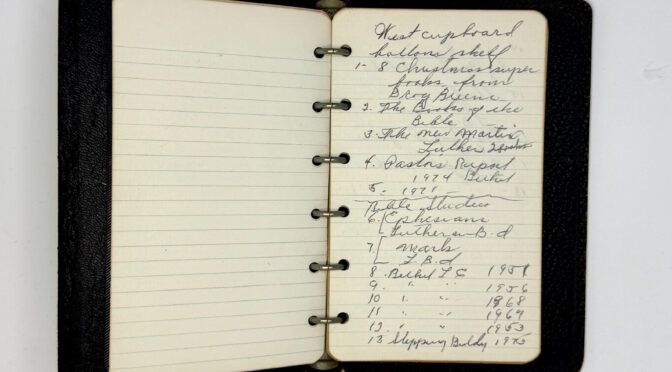 West cupboard
bottom shelf
1- 8 Christmas super
books from
2. The Books of the
Bible
3. The new Martin
Luther
4. Pastor's Report
1974 Bethel
5. 1971
Bible Studies
6. [Ephesians
Lutheran B.d
7. [Mark
L.B.d
8. Bethel L C 195
9. " " 1956
10 " " 1968
11 " " 1969
12. " " 1953
13 Stepping 1975